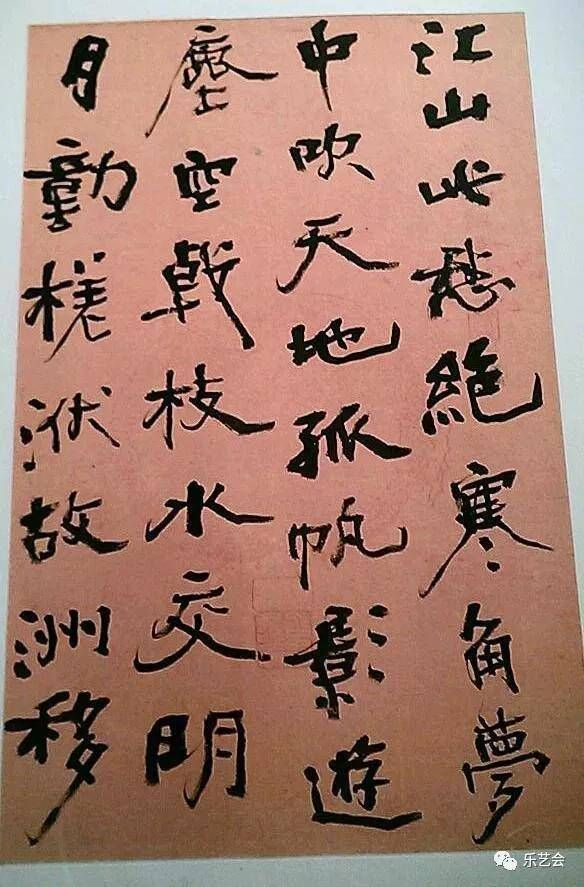 江山此愁絕寒角夢
中吹天地孤帆影遊
塵空戟枝水交明
月動槎洑故洲移
乐艺会